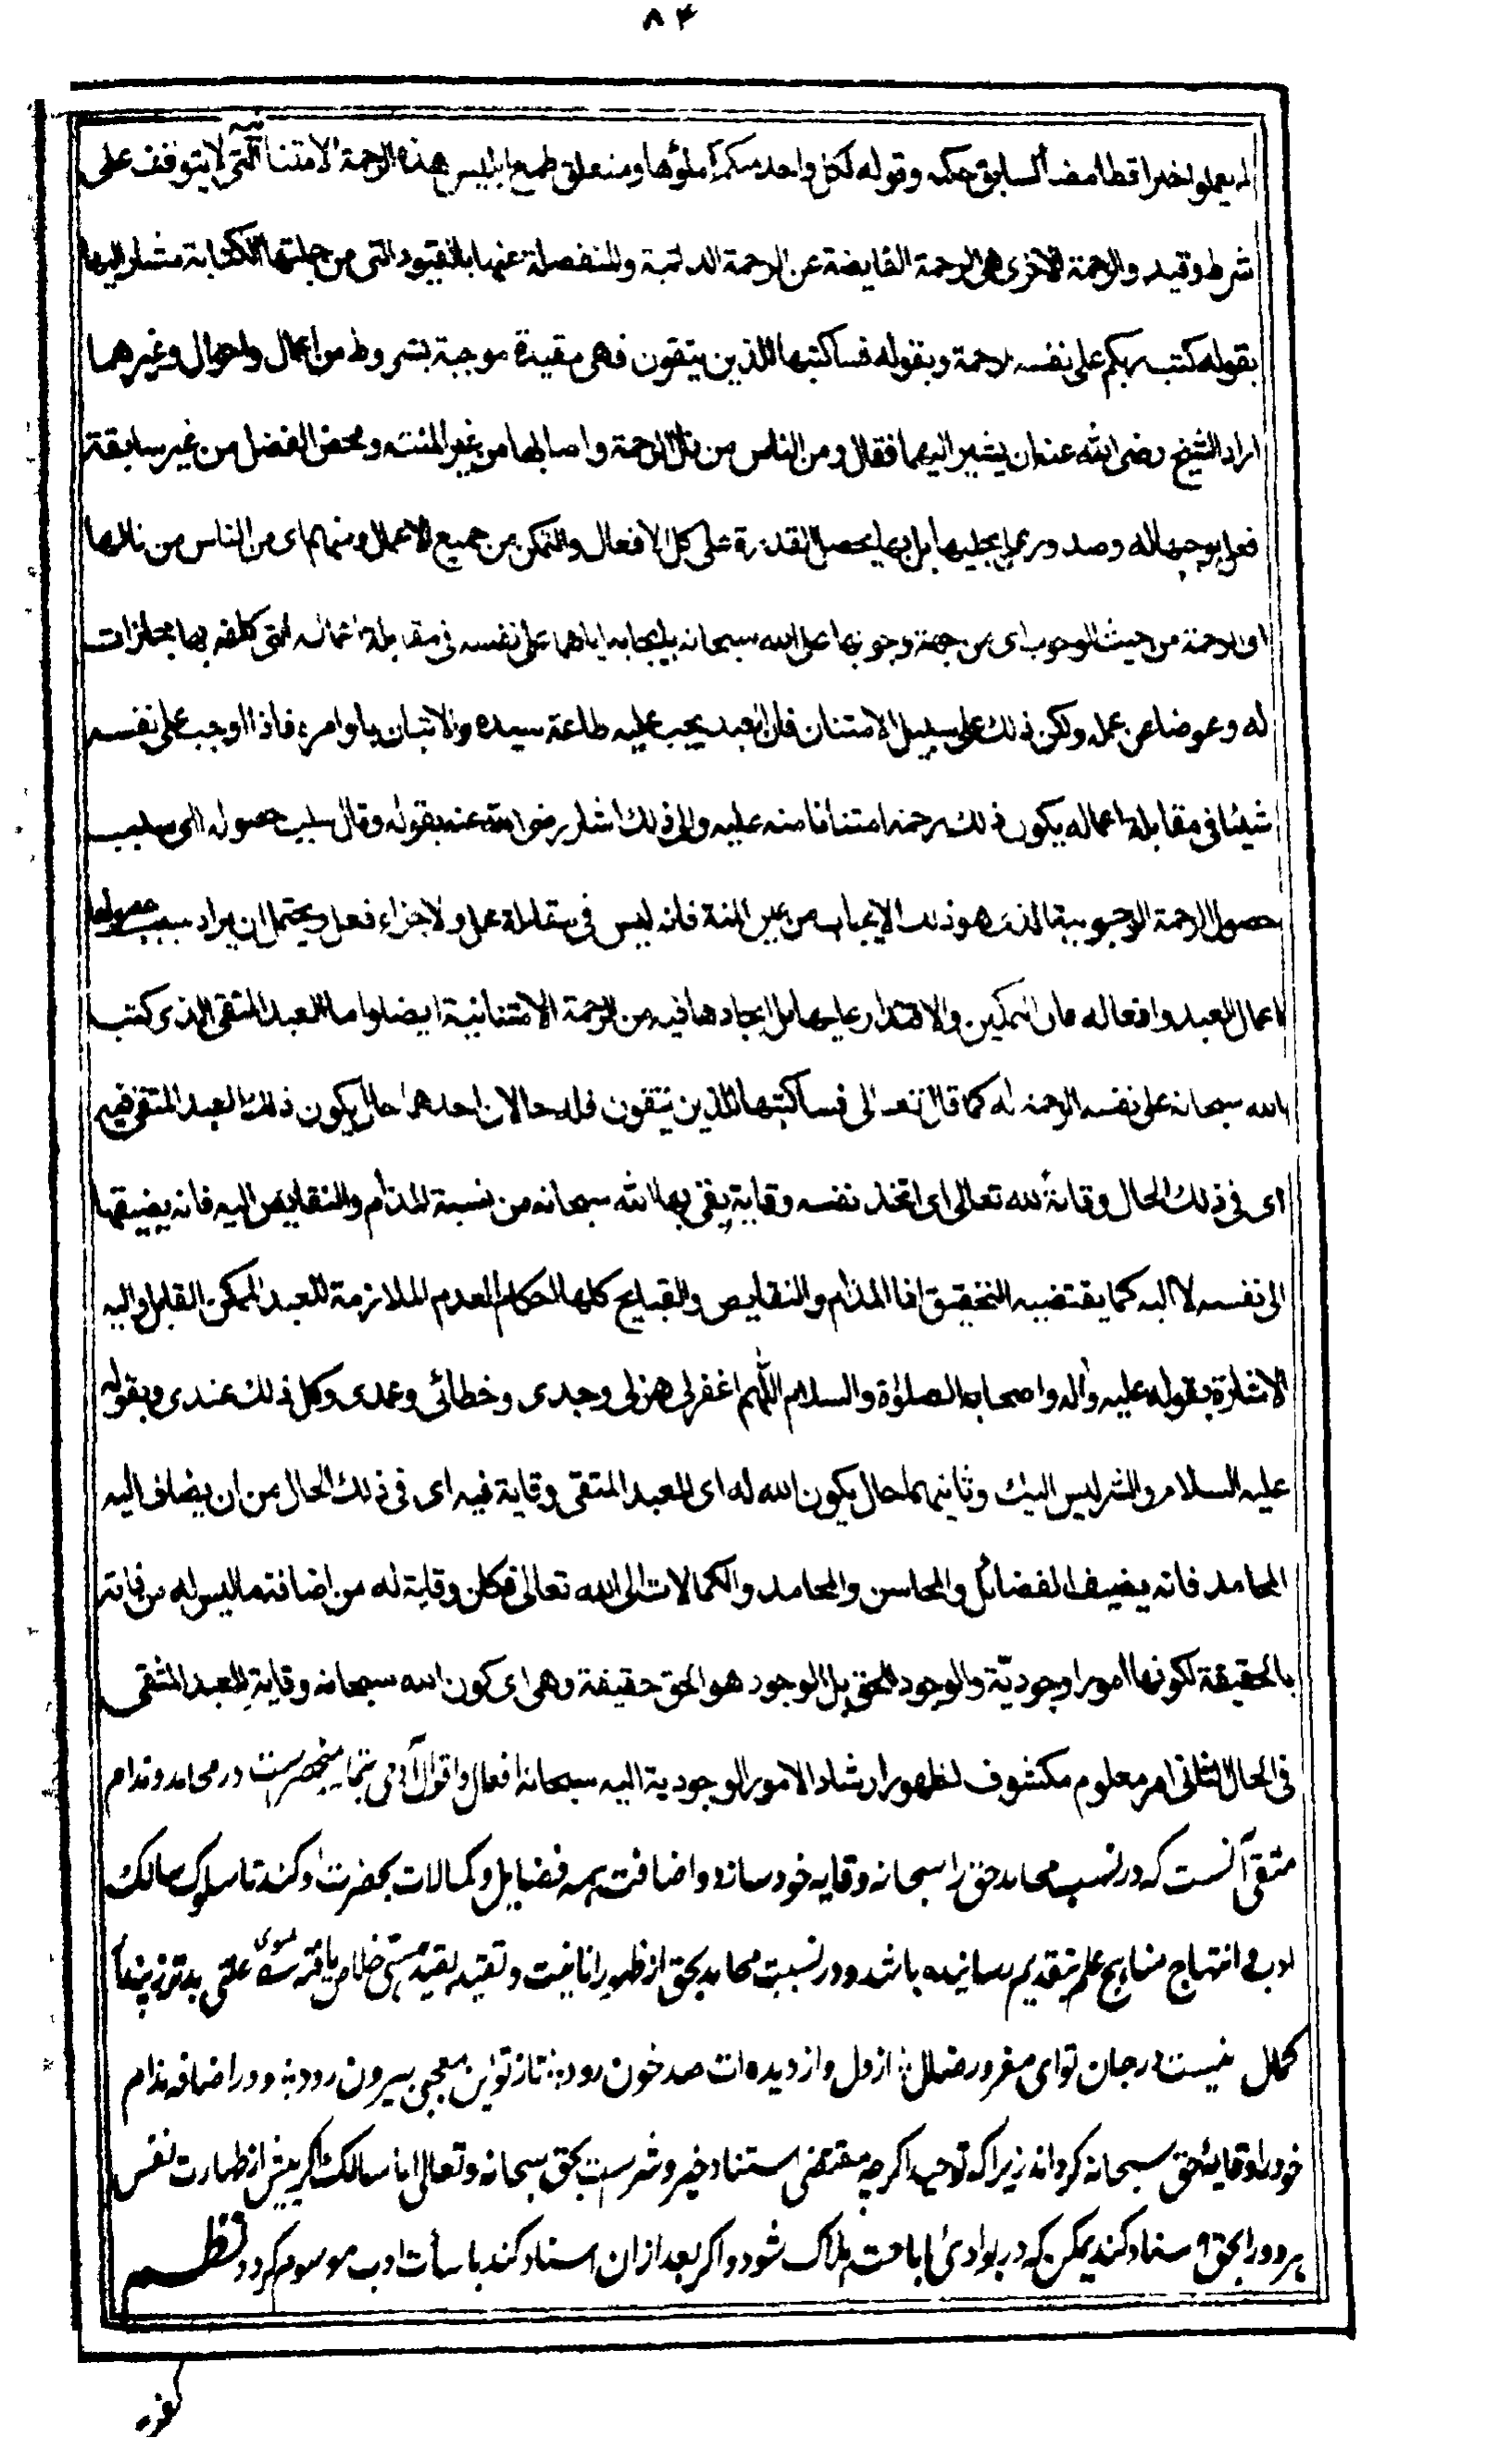 ۸۴
لم يعملوا خيرا قط امضاء لسابق حكمه وقوله لكل واحدة منكما ملؤها ومنه تعلق طمع ابليس هذه الرحمة الامتنانية التى لا يتوقف على
شرط وقيد والرحمة الاخرى هى الرحمة الفايضة عن الرحمة الذاتية والمنفصلة عنها بالقيود التى من جملتها الكتابة مشار اليها
بقوله كتب ربكم على نفسه الرحمة وبقوله فساكتبها للذين يتقون فهى مقيدة موجبة بشروط من اعمال واحوال وغيرهما
اراد الشيخ رضى الله عنه ان يشير اليهما فقال ومن الناس من نال الرحمة واصابها من عين المنة ومحض الفضل من غير سابقة
فعل يوجبها له وصدور عمل يجلبها بل بها يحصل القدرة على كل الافعال والتمكن من جميع الاعمال ومنهم اى من الناس من نالها
اى الرحمة من حيث الوجوب اى من جهة وجوبها على الله سبحانه بايجابه اياها على نفسه فى مقابلة اعماله التى كلفه بها مجازات
له وعوضا عن عمله ولكن ذلك على سبيل الامتنان فان العبد يجب عليه طاعة سيده والاتيان باوامره فاذا اوجب على نفسه
شيئا فى مقابلة اعماله يكون ذلك رحمة امتنانا منه عليه والى ذلك اشار رضى الله عنه بقوله وقال سبب حصوله اى سبب
حصول الرحمة الوجوبية الذى هو ذلك الايجاب من عين المنة فانه ليس فى مقابلة عمل ولا جزاء فعل ويحتمل ان يراد بسبب حصولها
اعمال العبد وافعاله فان التمكين والاقتدار عليها بل ايجادها فيه من الرحمة الامتنانية ايضا واما العبد المتقى الذى كتب
الله سبحانه على نفسه الرحمة له كما قال تعالى فساكتبها للذين يتقون فله حالان احدهما حال يكون ذلك العبد المتقى فيه
اى فى ذلك الحال وقاية لله تعالى اى اتخذ نفسه وقاية يقى بها الله سبحانه من نسبة المذام والنقايص اليه فانه يضيفها
الى نفسه لا اليه كما يقتضيه التحقيق اذا المذام والنقايص والقبايح كلها احكام العدم الملازمة للعبد الممكن القابل واليه
الاشارة بقوله عليه وآله واصحابه الصلوٰة والسلام اللّٰهم اغفر لى هزلى وجدى وخطائى وعمدى وكل ذلك عندى وبقوله
عليه السلام والشر ليس اليك وثانيهما حال يكون الله له اى للعبد المتقى وقاية فيه اى فى ذلك الحال من ان يضاف اليه
المحامد فانه يضيف الفضائل والمحاسن والمحامد والكمالات الى الله تعالى فكان وقاية له من اضافة ما ليس له من ذاته
بالحقيقة لكونها امورا وجوديّة والوجود للحق بل الوجود هو الحق حقيقة وهى اى كون الله سبحانه وقاية للعبد المتقى
فى الحال الثانى امر معلوم مكشوف لظهور ارشاد الامور الوجودية اليه سبحانه افعال واقوال آدمى بتمامه منحصرست در محامد ومذام
متقى آنست كه در نسب محامد حق را سبحانه وقايه خود سازد واضافت همه فضايل وكمالات بحضرت او كند تا سلوك سالك
ادب فى انتهاج مناهج علم بتقديم رسانيده باشد ودر نسبت محامد بحق از ظهور انانيت وتقيد بقيد هستى خلاص يافته مثنوى علتى بدتر ز پندار
كمال نيست در جان تو اى مغرور ضال : از دل واز ديده ات صد خون رود : تا ز تو اين معجبى بيرون رود : ودر اضافه مذام
خود را وقايهٔ حق سبحانه گرداند زيرا كه توحيد اگر چه مقتضى استناد خير وشرست بحق سبحانه وتعالى اما سالك اگر پيش از طهارت نفس
هر دو را بحق اسناد كند يمكن كه در بوادئ اباحت هلاك شود واگر بعد از ان اسناد كند باسأت ادب موسوم گردد نظم